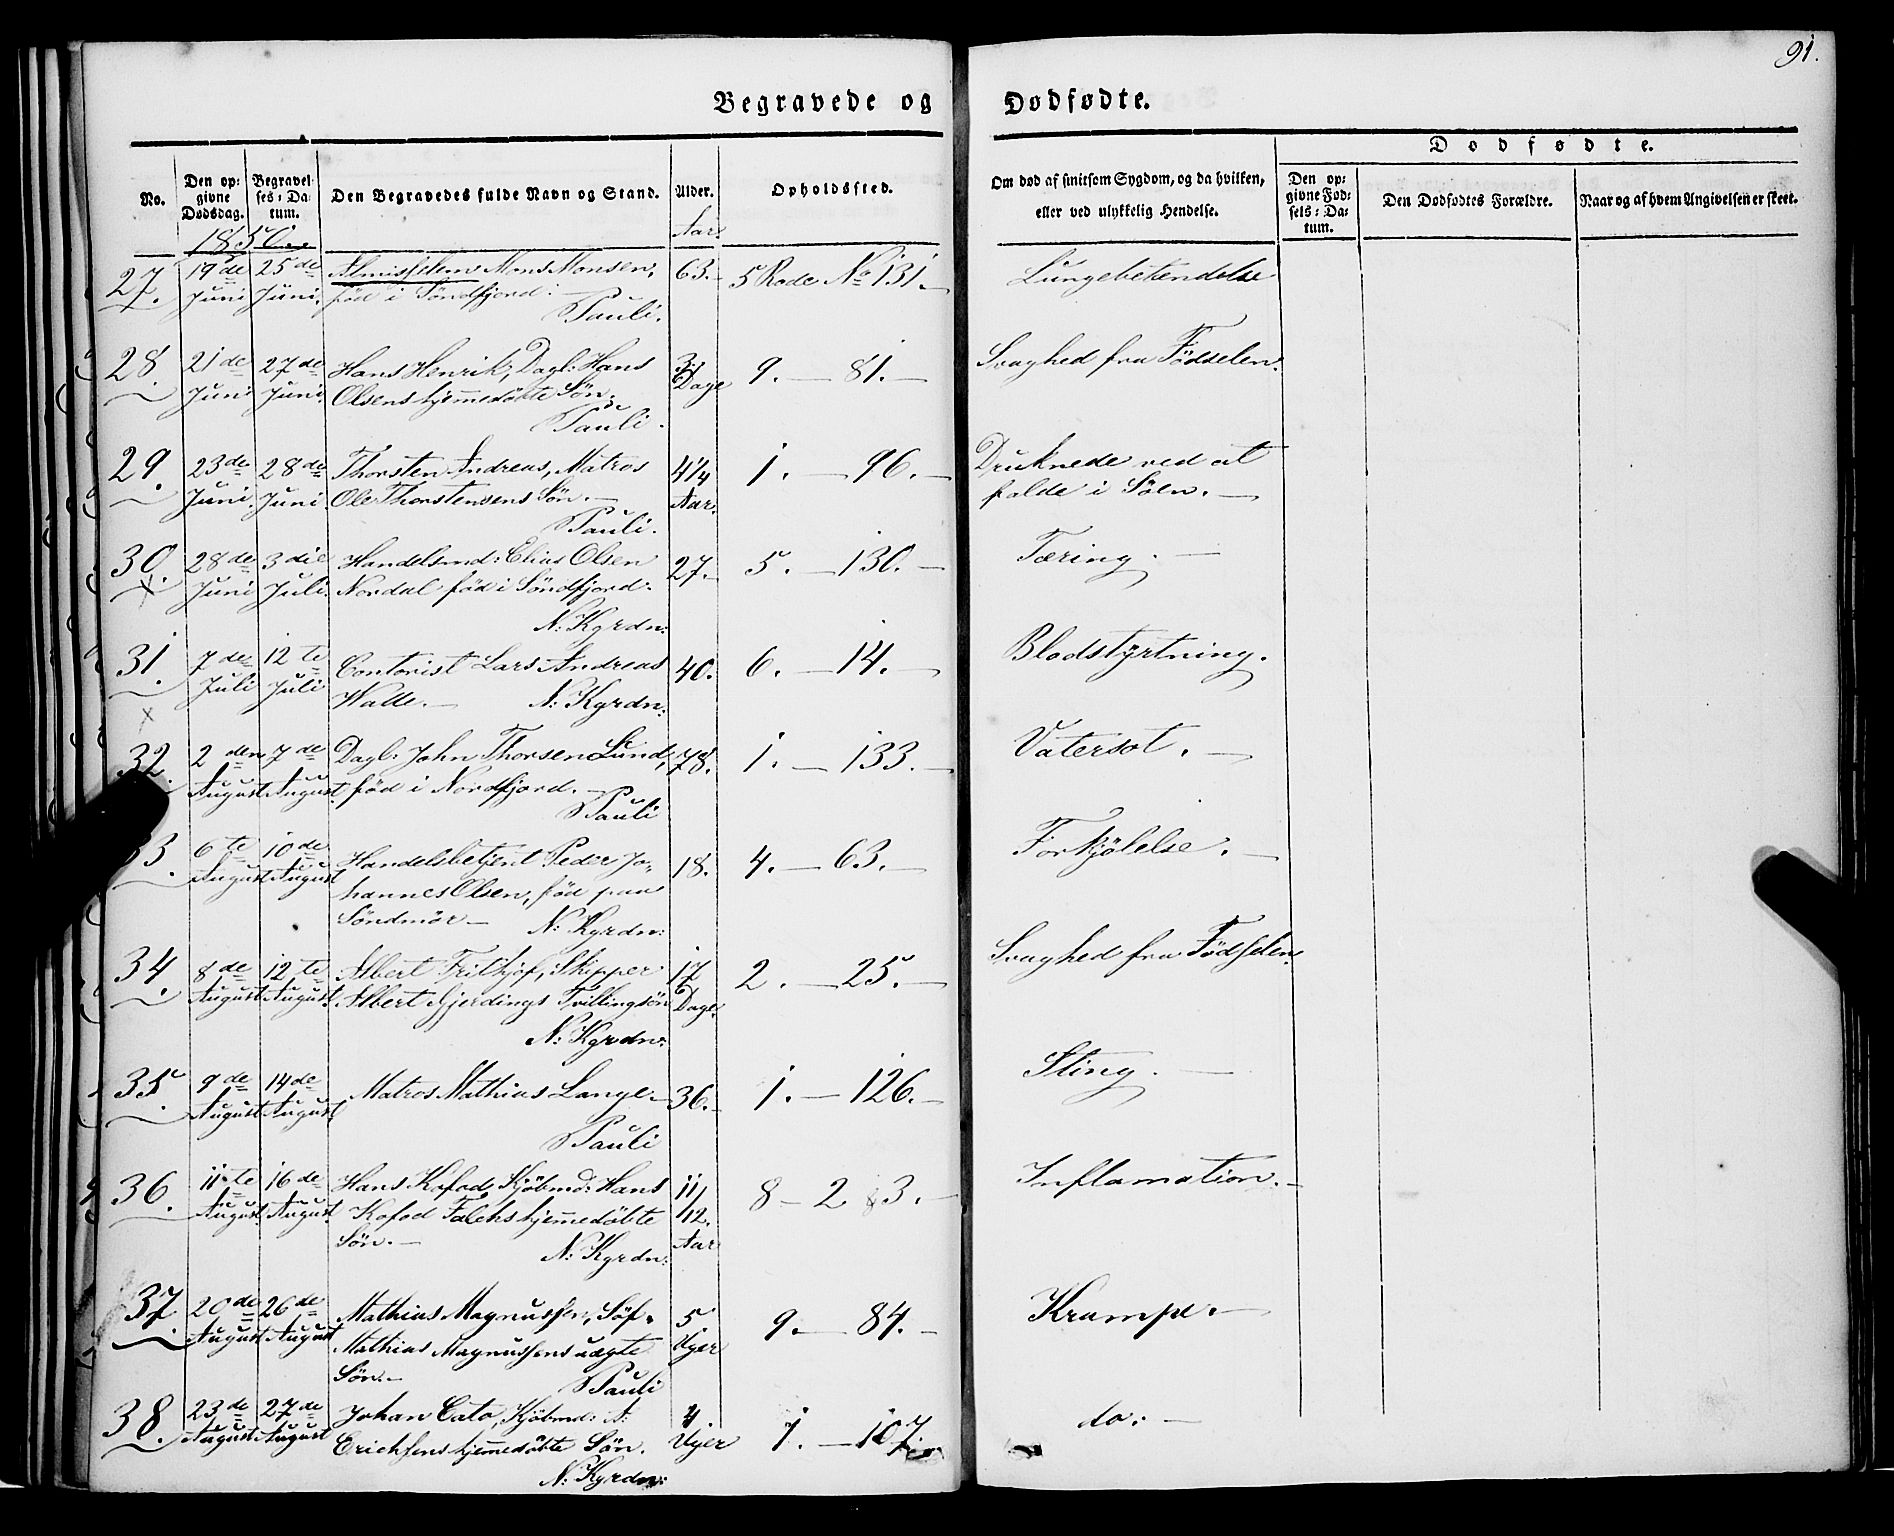 91.
Begravede og Dødfødte.
No.
Den opgivne Dødsdag.
Begravelses-Datum.
Den Begravedes fulde Navn og Stand.
Alder.
Opholdssted.
Om død af smitsom Sygdom, og da hvilken, eller ved ulykkelig Hendelse.
Dødfødte.
Den opgivne Fødsels-Datum.
Den Dødfødtes Forældre.
Naar og af hvem Angivelsen er skeet.
1850.
Aar.
27. 19de 25de Almisselem Mons Monsen, 63.- 5 Rode No 131.- Lungebetendelse
Juni Juni. fød i Søndfjord.
Pauli.
28. 21de 27de Hans Henrik, Dagl: Hans 9.- 81.- Svaghed fra Fødselen.
Juni Juni. Olsens hjemedøbte Søn. Dage
Pauli.
29. 23de 28de Thorsten Andreas, Matros 4¼ 1.- 96.- Druknede ved at
Juni Juni. Ole Thorstensens Søn.- Aar. falde i Söen.-
Pauli.
30. 28de 3die Handelsmd: Elias Olsen 27.- 5.- 130.- Tæring.-
Juni Juli. Nordal fød i Søndfjord.
N: Kgrdn:
31. 7de 12te Contorist Lars Andreas 40. 6.- 14.- Blodstyrtning.
Juli Juli Walle.- N: Kgrdn:
32. 2den 7de Dagl: John Thorsen Lund, 78. 1.- 133.- Vatersot.-
August August. fød i Nordfjord.-
Pauli
33. 6te 10de Handelsbetjent Peder Jo- 18. 4.- 63.- Forkjølelse.-
August August hannes Olsen, fød paa
Søndmör- N: Kgrdn:
34. 8de 12te Albert Frithjof, Skipper 17 2.- 25.- Svaghed fra Fødselen
August August. Albert Gjerdings Tvillingsøn Dage.
N: Kgrdn:
35. 9de 14de Matros Mathias Lange.- 36.- 1.- 126.- Sting.-
August August
Pauli
36. 11te 16de Hans Kofod, Kjøbmd: Hans 11/12. 8- 2 3.- Inflamation.-
August August. Kofod Falchs hjemedøbte Aar
Søn.- N: Kgrdn:
37. 20de 26de Mathias Magnussen, Söf. 5 9.- 84.- Krampe.-
August August Mathias Magnussens uægte Uger
Søn.- Pauli
38. 23de 27de Johan Cato, Kjøbmd: A: 4 1.- 107.- do.-
August August Erichsens hjemedøbte Søn. Uger
N: Kgrdn: